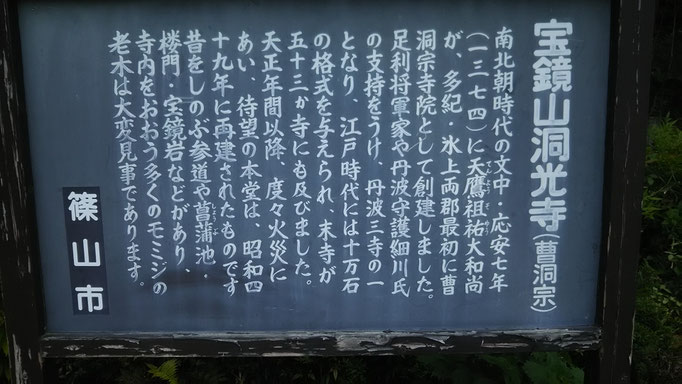 宝鏡山洞光寺(曹洞宗)
南北朝時代の文中・応安七年
(一三七四)に天鷹祖祐大和尚
が、多紀・氷上両郡最初に曹
洞宗寺院として創建しました。
足利将軍家や丹波守護細川氏
の支持をうけ、丹波三寺の一
となり、江戸時代には十万石
の格式を与えられ、末寺が
五十三か寺にも及びました。
天正年間以降、度々火災に
あい、待望の本堂は、昭和四
十九年に再建されたものです
昔をしのぶ参道や菖蒲池・
楼門・宝鏡岩などがあり、
寺内をおおう多くのモミジの
老木は大変見事であります。
篠山市